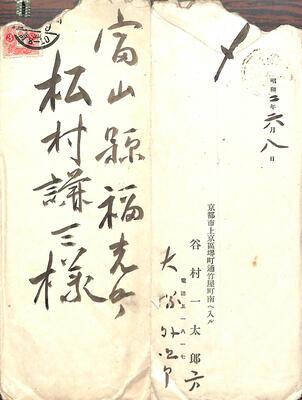 富山縣福光町
松村謙三様
昭和二年六月八日
京都市上京區堺町通竹屋町南ヘ入ル
谷村一太郎
電話五一八一七